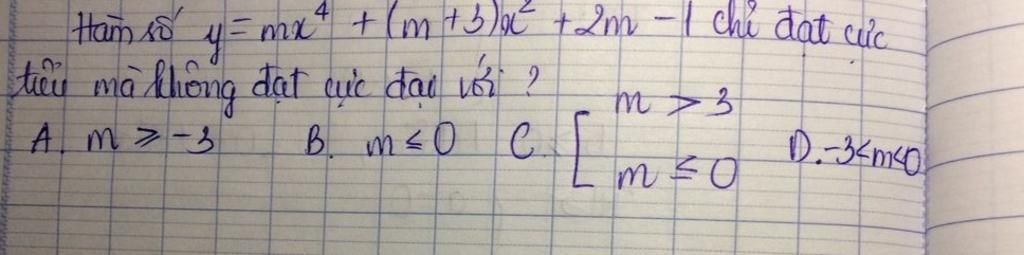 Hàm số y = mx⁴ + (m+3)x² + 2m - 1 chỉ đạt cực
tiểu mà không đạt cực đại với ?
A. m ≥ -3 B. m ≤ 0 C. [ m > 3 D. -3<m<0
m ≤ 0